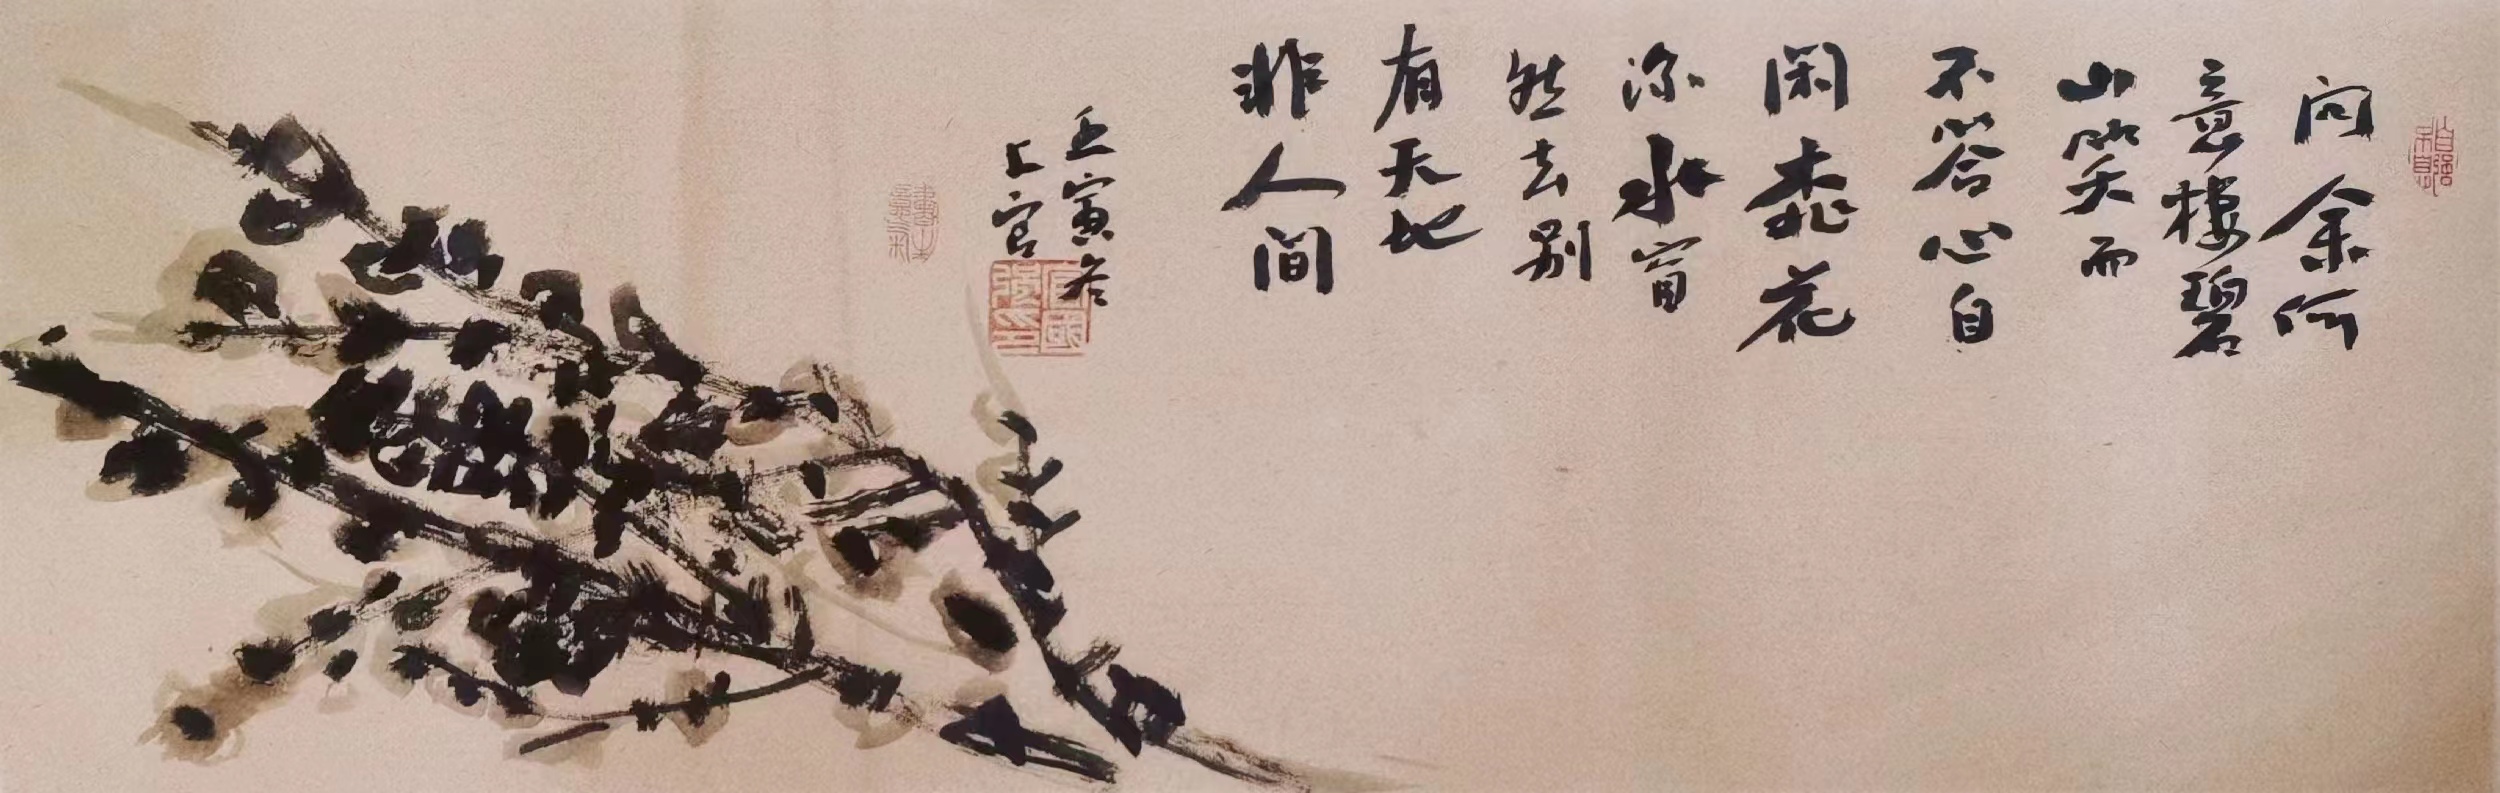 问余何
意棲碧
山笑而
不答心自
閑桃花
流水窅
然去别
有天地
非人間
壬寅冬
上官